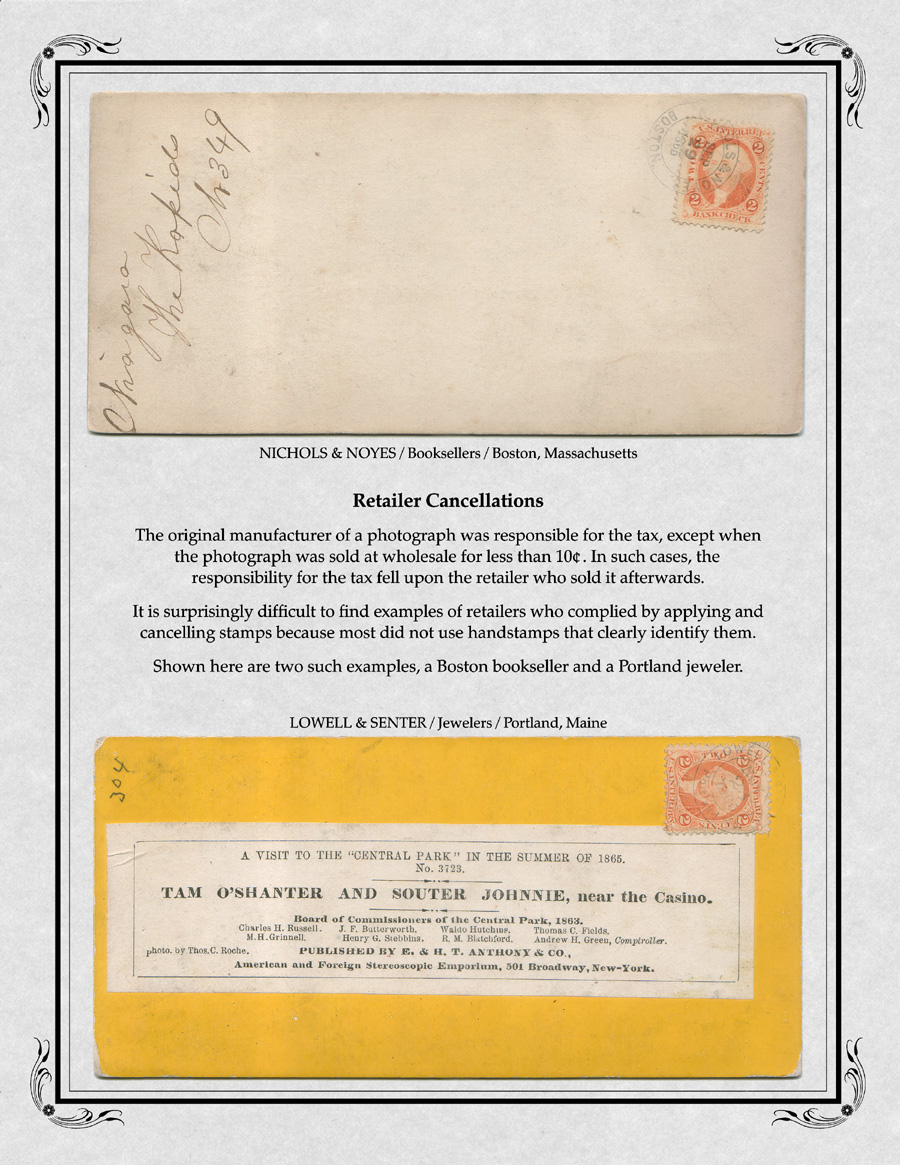 Niagara
The Rapids
No 349
BOSTON
U.S. INTER. REV.
2 2
TWO CENTS
2 2
BANK CHECK
NICHOLS & NOYES / Booksellers / Boston, Massachusetts
Retailer Cancellations
The original manufacturer of a photograph was responsible for the tax, except when
the photograph was sold at wholesale for less than 10¢. In such cases, the
responsibility for the tax fell upon the retailer who sold it afterwards.
It is surprisingly difficult to find examples of retailers who complied by applying and
cancelling stamps because most did not use handstamps that clearly identify them.
Shown here are two such examples, a Boston bookseller and a Portland jeweler.
LOWELL & SENTER / Jewelers / Portland, Maine
304
2 2
2 2
CENTS
A VISIT TO THE "CENTRAL PARK" IN THE SUMMER OF 1865.
No. 3723.
TAM O'SHANTER AND SOUTER JOHNNIE, near the Casino.
Board of Commissioners of the Central Park, 1863.
Charles H. Russell. J. F. Butterworth. Waldo Hutchins. Thomas C. Fields.
M. H. Grinnell. Henry G. Stebbins. R. M. Blatchford. Andrew H. Green, Comptroller.
photo. by Thos. C. Roche. PUBLISHED BY E. & H. T. ANTHONY & CO.,
American and Foreign Stereoscopic Emporium, 501 Broadway, New-York.